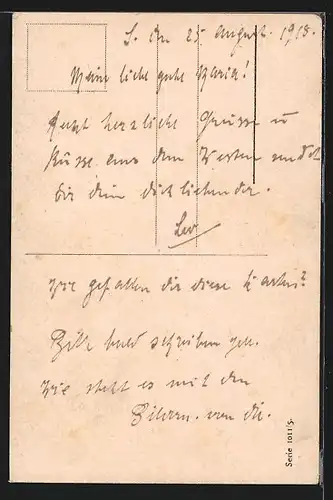 S. den 25 August. 1918.
Meine liebe gute Maria!
herzliche Grüsse u
Küsse aus dem Westen sendet
dir dein dich liebender.
Leo
Wie gefallen dir diese Karten?
Bitte bald schreiben
Wie steht es mit den
Bildern. von dir.
Serie 1011/5.